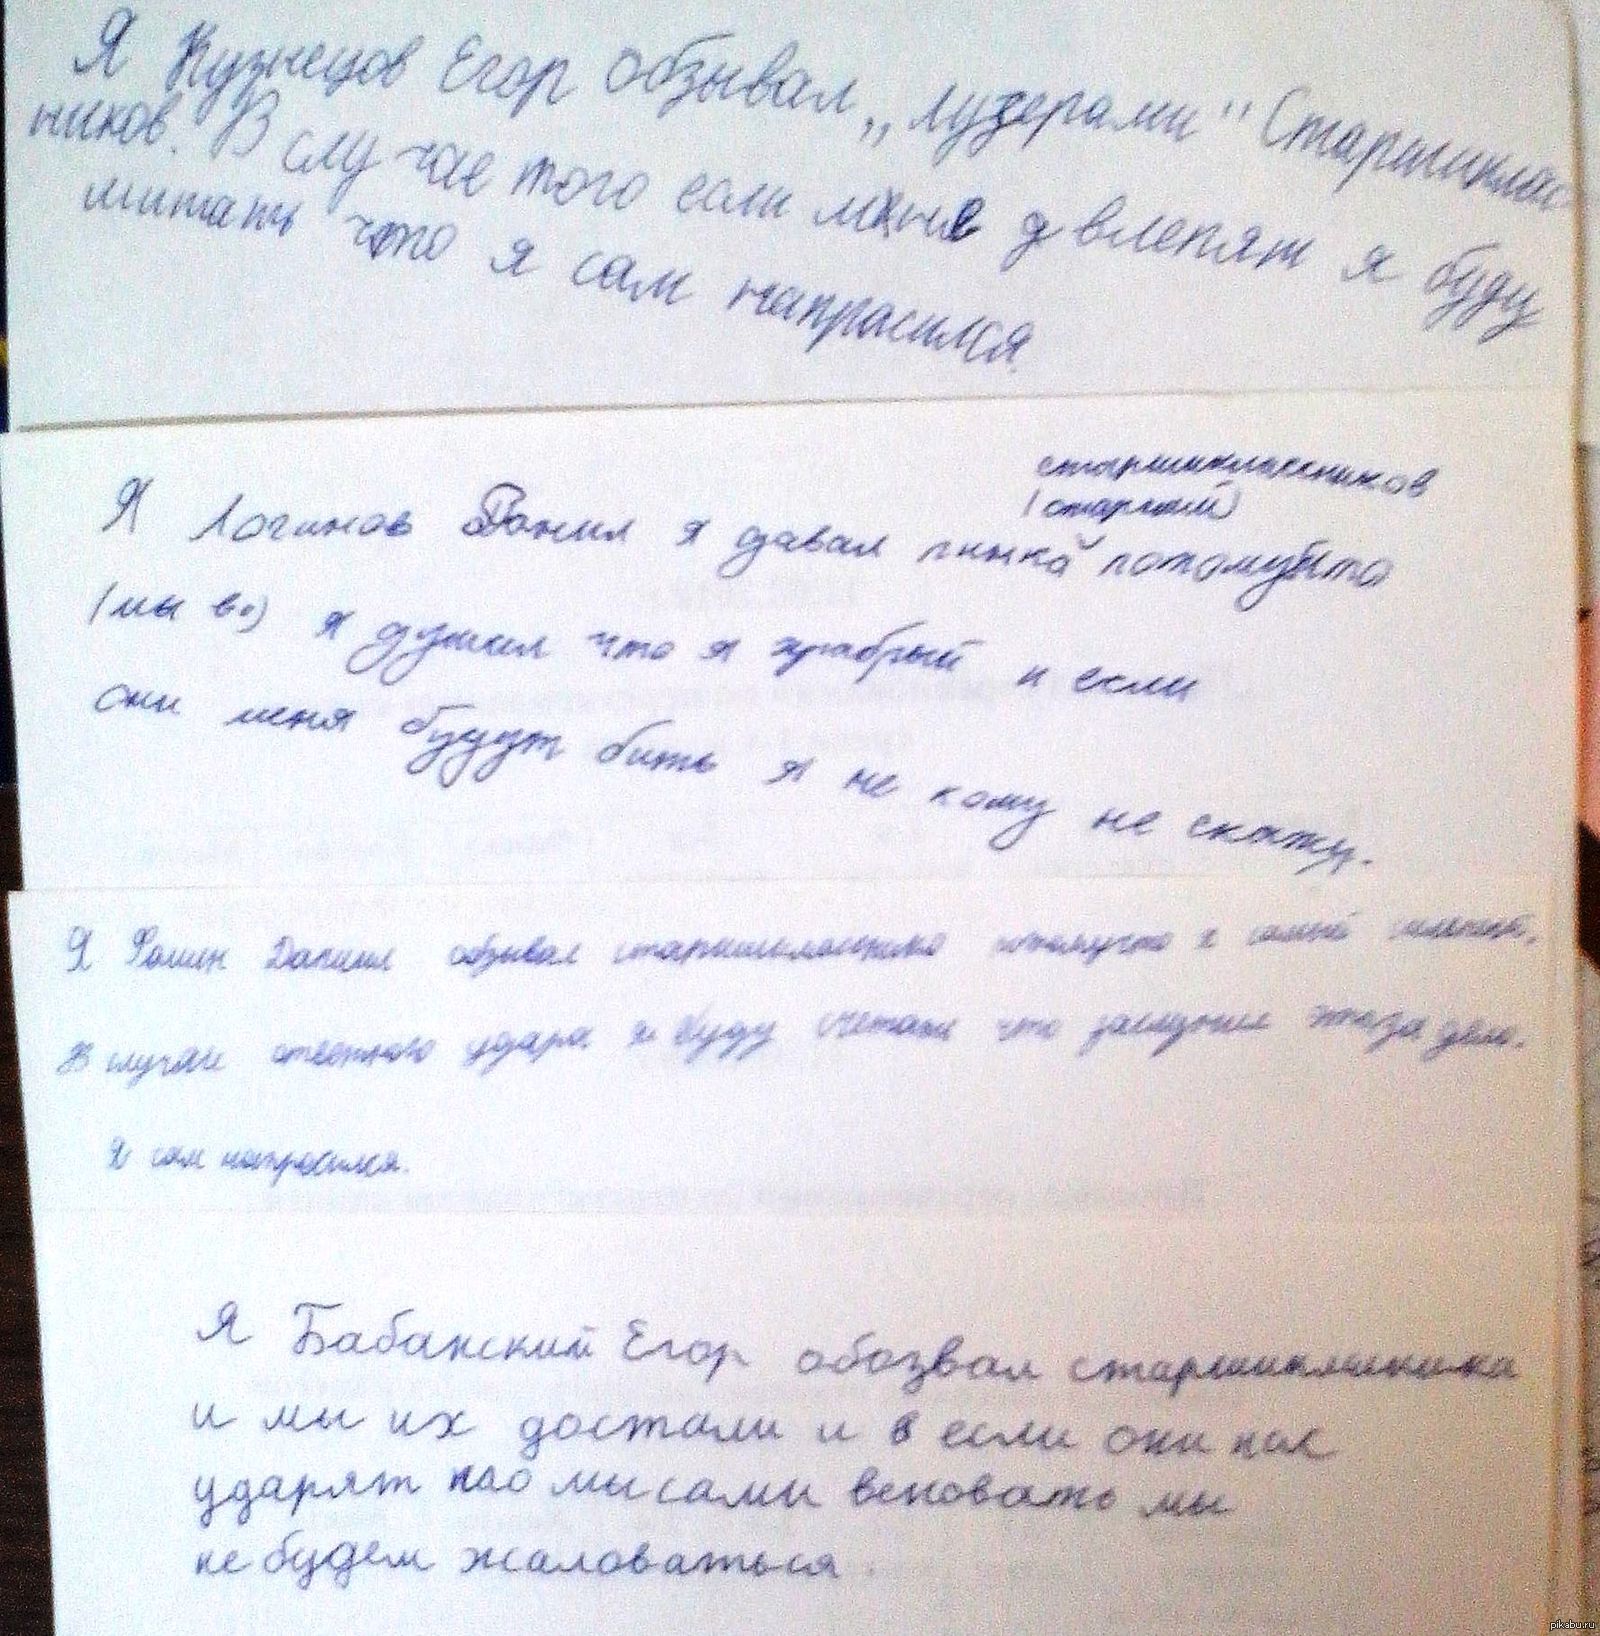 Я Кузнецов Егор обзывал „лузерами" Старшиклас
ников. В случае того если мене двлепят я буду
щитать что я сам напрасился.
старшиклассников
(старший)
Я Логинов Данил я давал пинка потомушто
(мы во) я думал что я храбрый и если
они меня будут бить я не кому не скажу.
Я Фомин Даниил обзывал старшиклассника потомучто я самый
В случаи ответного удара я буду считать что заслужил это за дело.
Я сам напросился.
Я Бабанский Егор обозвал старшиклассника
и мы их достали и в если они нас
ударят то мы сами вековать мы
не будем жаловаться.
pikabu.ru